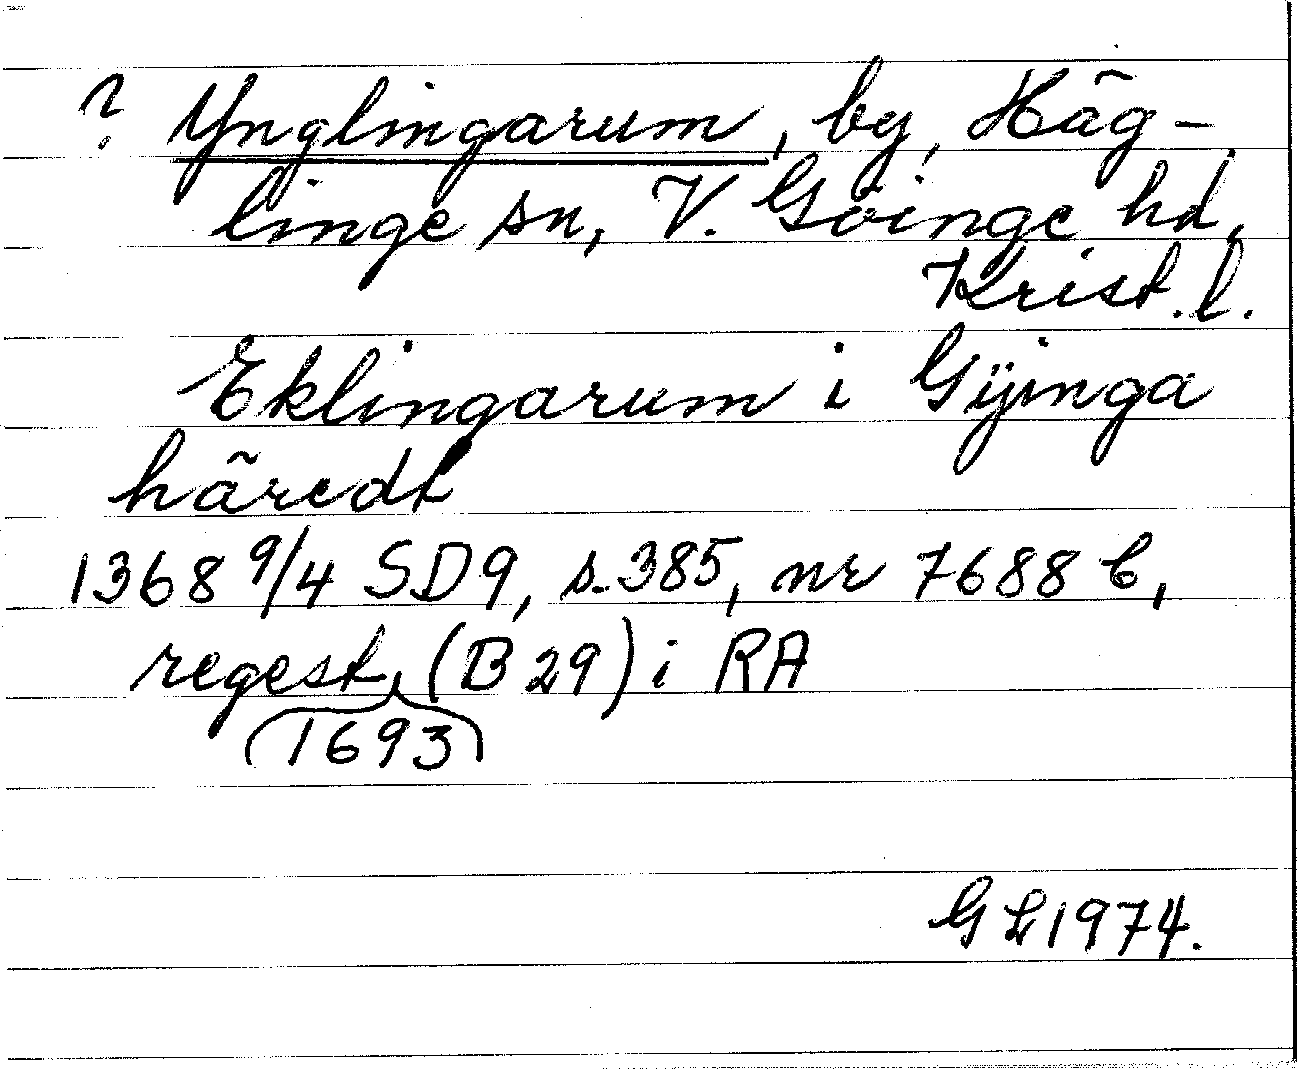 ? Ynglingarum, by, Häg-
linge sn, V. Göinge hd,
Krist. l.
Eklingarum i Gÿinga
häredt
1368 9/4 SD9, s. 385, nr 7688 b,
regest, (B 29) i RA
1693
GL 1974.